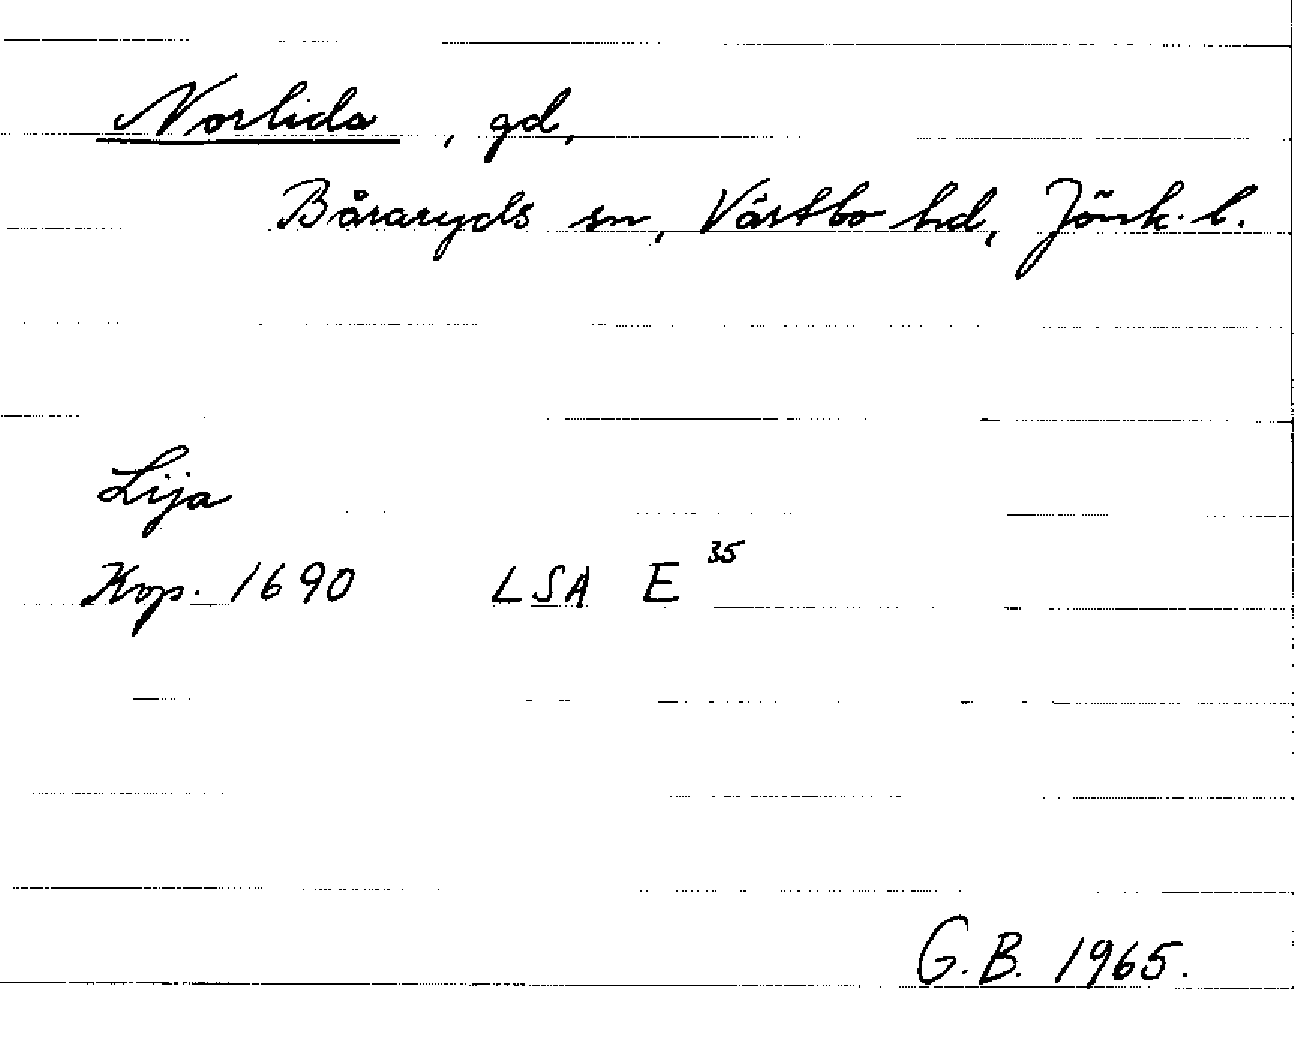 Norlida, gd,
Båraryds sn, Västbo hd, Jönk. l.
Lija
Kop. 1690 LSA E 35
G.B. 1965.